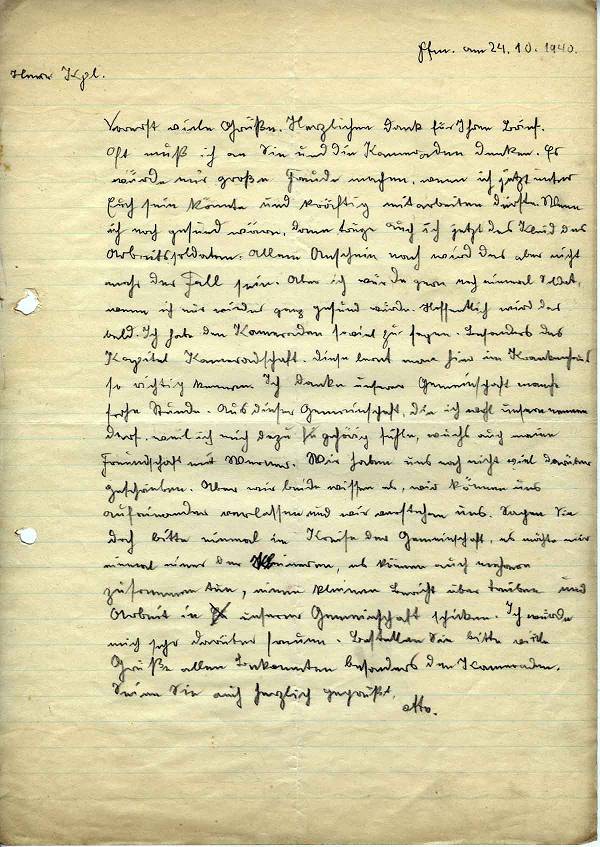 Ffm. am 24.10.1940.
Herr Kpl.
Vorerst viele Grüße. Herzlichen Dank für Ihren Brief.
Oft muß ich an Sie und die Kameraden denken. Es
würde mir große Freude machen, wenn ich jetzt unter
Euch sein könnte und kräftig mitarbeiten dürfte. Wenn
ich noch gesund wäre, dann trüge auch ich jetzt das Kleid des
Arbeitssoldaten. Allem Anschein nach wird das aber nicht
mehr der Fall sein. Aber ich würde gern noch einmal Soldat,
wenn ich nur wieder ganz gesund würde. Hoffentlich wird das
bald. Ich habe den Kameraden soviel zu sagen. Besonders das
Kapitel Kameradschaft. Diese lernt man hier im Krankenhaus
so richtig kennen. Ich danke unserer Gemeinschaft manche
frohe Stunde. Aus dieser Gemeinschaft, die ich wohl unsere nennen
darf, weil ich mich dazu gehörig fühle, wuchs auch meine
Freundschaft mit Werner. Wir haben uns noch nicht viel darüber
geschrieben. Aber wir beide wissen es, wir können uns
aufeinander verlassen und wir verstehen uns. Sagen Sie
doch bitte einmal im Kreise der Gemeinschaft, es möchte mir
einmal einer der Kleineren, es können auch mehrere
zusammen tun, einen kleinen Bericht über Treiben und
Arbeit in unserer Gemeinschaft schicken. Ich würde
mich sehr darüber freuen. Bestellen Sie bitte viele
Grüße allen Bekannten besonders den Kameraden.
Seien Sie auch herzlich gegrüßt,
Otto.